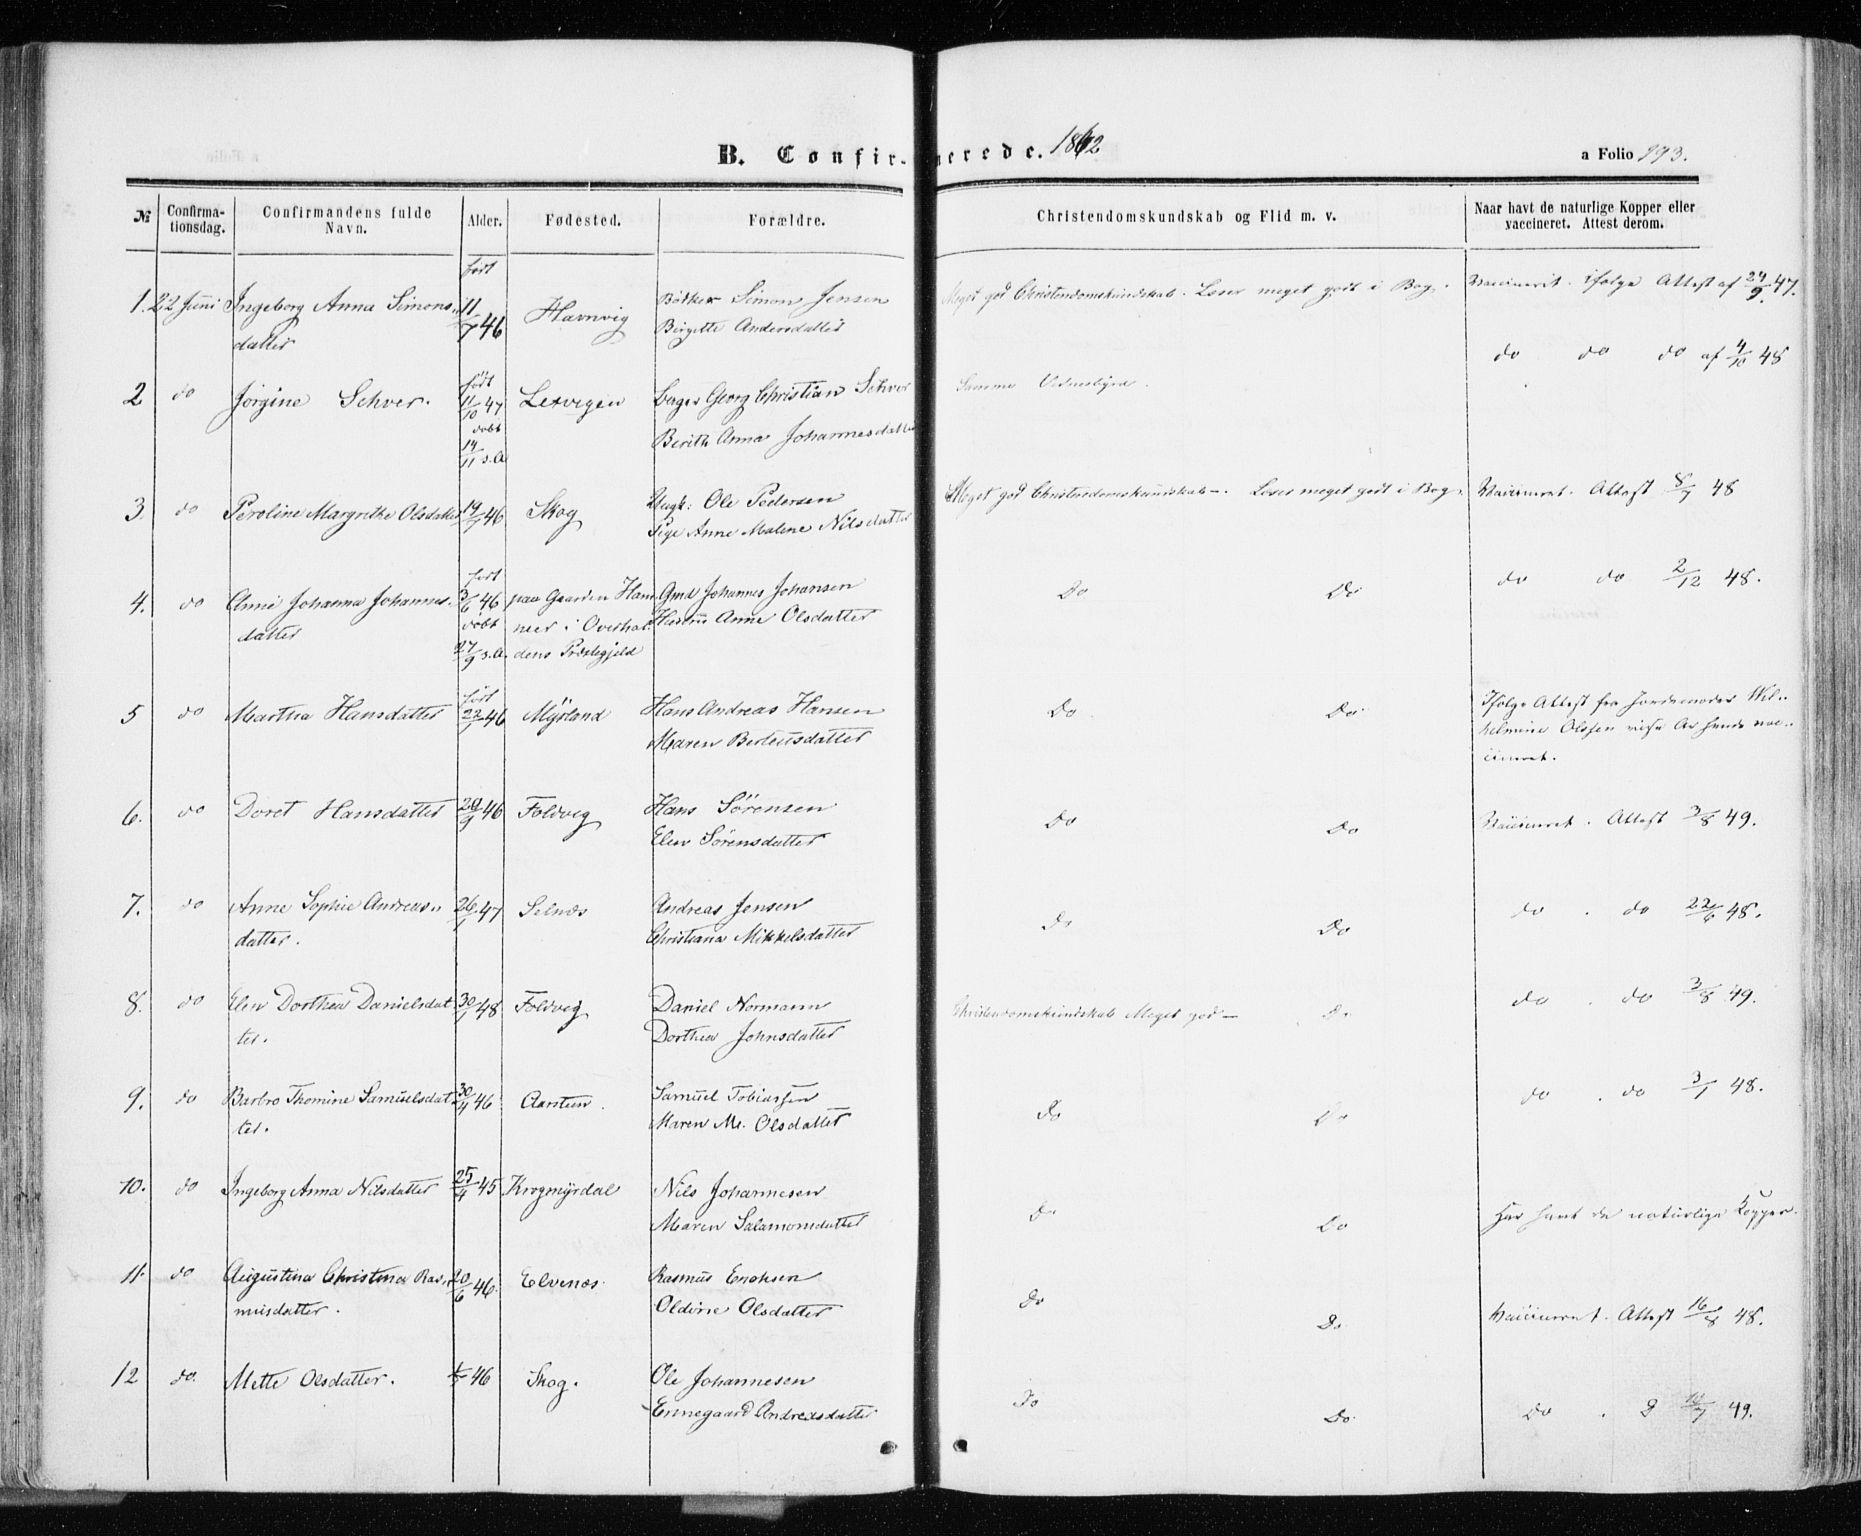 B. Confirmerede. 1862
a Folio 193.
№ Confirmationsdag. Confirmandens fulde Navn. Alder. Fødested. Forældre. Christendomskundskab og Flid m. v. Naar havt de naturlige Kopper eller vaccineret. Attest derom.
født
1. 22 Juni Ingeborg Anna Simons- 11/7 46 Havnvig Bødker Simon Jensen Meget god Christendomskundskab. Læser meget godt i Bog. Vaccineret ifølge Attest af 24/9 47.
datter Birgitte Andersdatter
født
2 do Jörgine Schver. 11/10 47 Lexvegen Georg Christian Schver Samme Vidnesbyrd. do do do af 4/10 48
døbt Berith Anna Johannesdatter
14/11 s.A
3 do Peroline Margrethe Olsdatter 19/7 46 Skog Ungk: Ole Pedersen Meget god Christendomskundskab. Læser meget godt i Bog. Vaccineret. Attest 8/7 48
Pige Anne Malene Nilsdatter
født
4. do Anne Johanna Johannes- 3/6 46 paa Gaarden Ham- Gmd Johannes Johansen Do Do do do 2/12 48.
datter døbt mer i Overhal- Hustru Anne Olsdatter
27/9 s.A. dens Præstegjeld
født
5 do Martha Hansdatter 22/7 46 Myrland Hans Andreas Hansen Do Do Ifølge Attest fra Jordemoder Wil-
Maren Berteusdatter helmine Olssen vac-
cineret.
6. do Doret Hansdatter 29/9 46 Foldvig Hans Sörensen Do Do Vaccineret. Attest 3/8 49.
Elen Sörensdatter
7. do Anne Sophie Andreas- 26/1 47 Selnæs Andreas Jensen Do Do do. do 22/6 48.
datter. Christiana Mikkelsdatter
8. do Elen Dorthea Danielsdat- 30/1 48 Foldvig Daniel Normann Christendomskundskab Meget god— Do do. do 3/8 49.
ter. Dorthea Johnsdatter
9. do Barbro Thomine Samuelsdat- 30/11 46 Aarstun. Samuel Tobiassen Do Do do. do 3/1 48.
ter. Maren M. Olsdatter
10. do Ingeborg Anna Nilsdatter 25/4 45 Krogmyrdal Nils Johannesen Do Do Har havt de naturlige Kopper.
Maren Salamonsdatter
11. do Augustina Christina Ras- 20/6 46. Elvenæs Rasmus Erichsen Do Do Vaccineret. Attest 16/8 48.
musdatter. Oldine Olsdatter
12 do. Mette Olsdatter. 46 Skog. Ole Johannesen Do Do Do. 49.
Ennegaard Andreasdatter